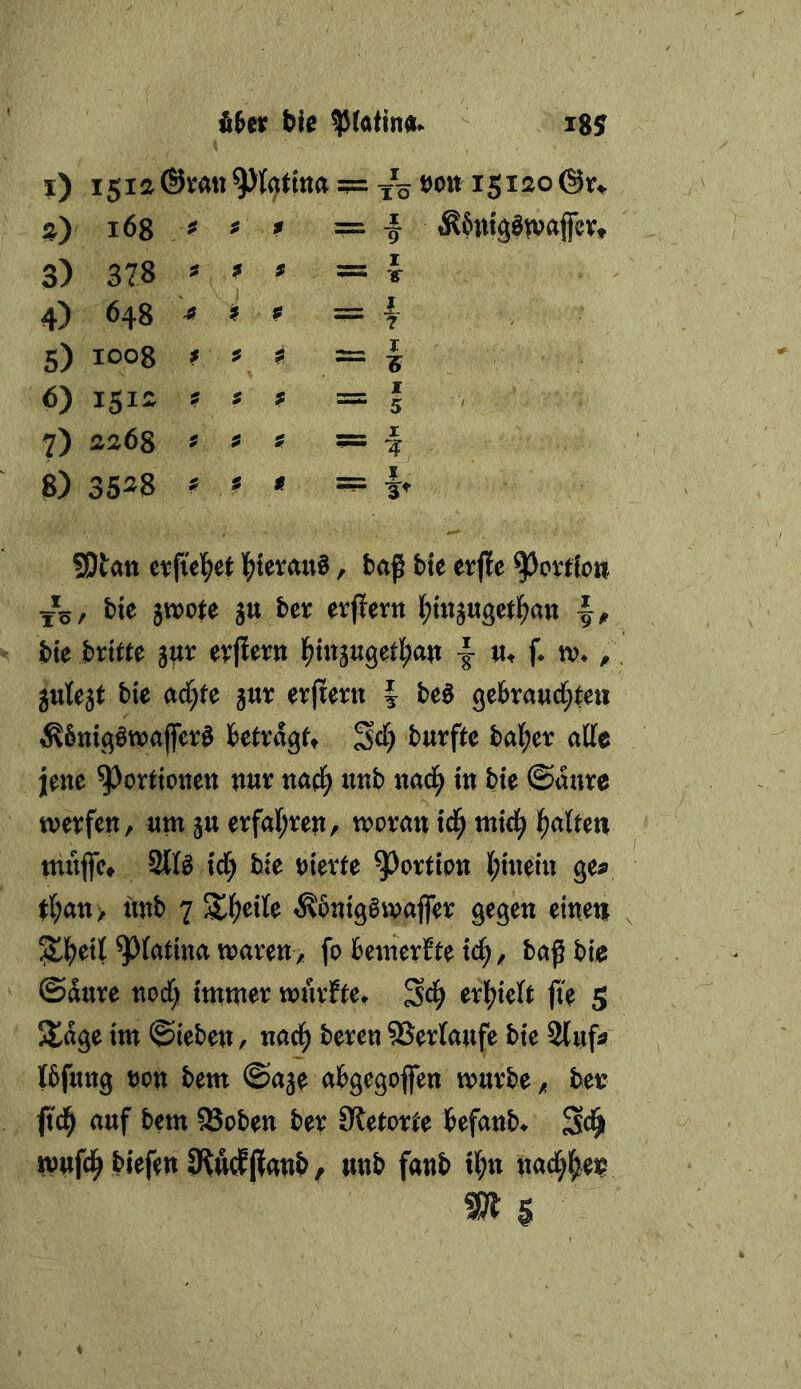 über die Platina. 185
1) 1512 Gran Platina = 1/10 von 15120 Gr.
2) 168 = = = = 1/9 Königswasser.
3) 378 = = = = 1/8
4) 648 = = = = 1/7
5) 1008 = = = = 1/6
6) 1512 = = = = 1/5
7) 2268 = = = = 1/4
8) 3528 = = = = 1/3.
Man ersiehet hieraus, daß die erste Portion
1/10, die zwote zu der erstern hinzugethan 1/9,
die dritte zur erstern hinzugethan 1/8 u. s. w.,
zulezt die achte zur erstern 1/3 des gebrauchten
Königswassers beträgt. Ich durfte daher alle
jene Portionen nur nach und nach in die Säure
werfen, um zu erfahren, woran ich mich halten
müsse. Als ich die vierte Portion hinein ge=
than, und 7 Theile Königswasser gegen einen
Theil Platina waren, so bemerkte ich, daß die
Säure noch immer würkte. Ich erhielt sie 5
Täge im Sieden, nach deren Verlaufe die Auf=
lösung von dem Saze abgegossen wurde, der
sich auf dem Boden der Retorte befand. Ich
wusch diesen Rückstand, und fand ihn nachher
M 5